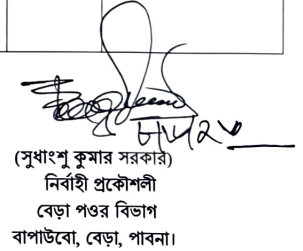 (সুধাংশু কুমার সরকার)
নির্বাহী প্রকৌশলী
বেড়া পওর বিভাগ
বাপাউবো, বেড়া, পাবনা।